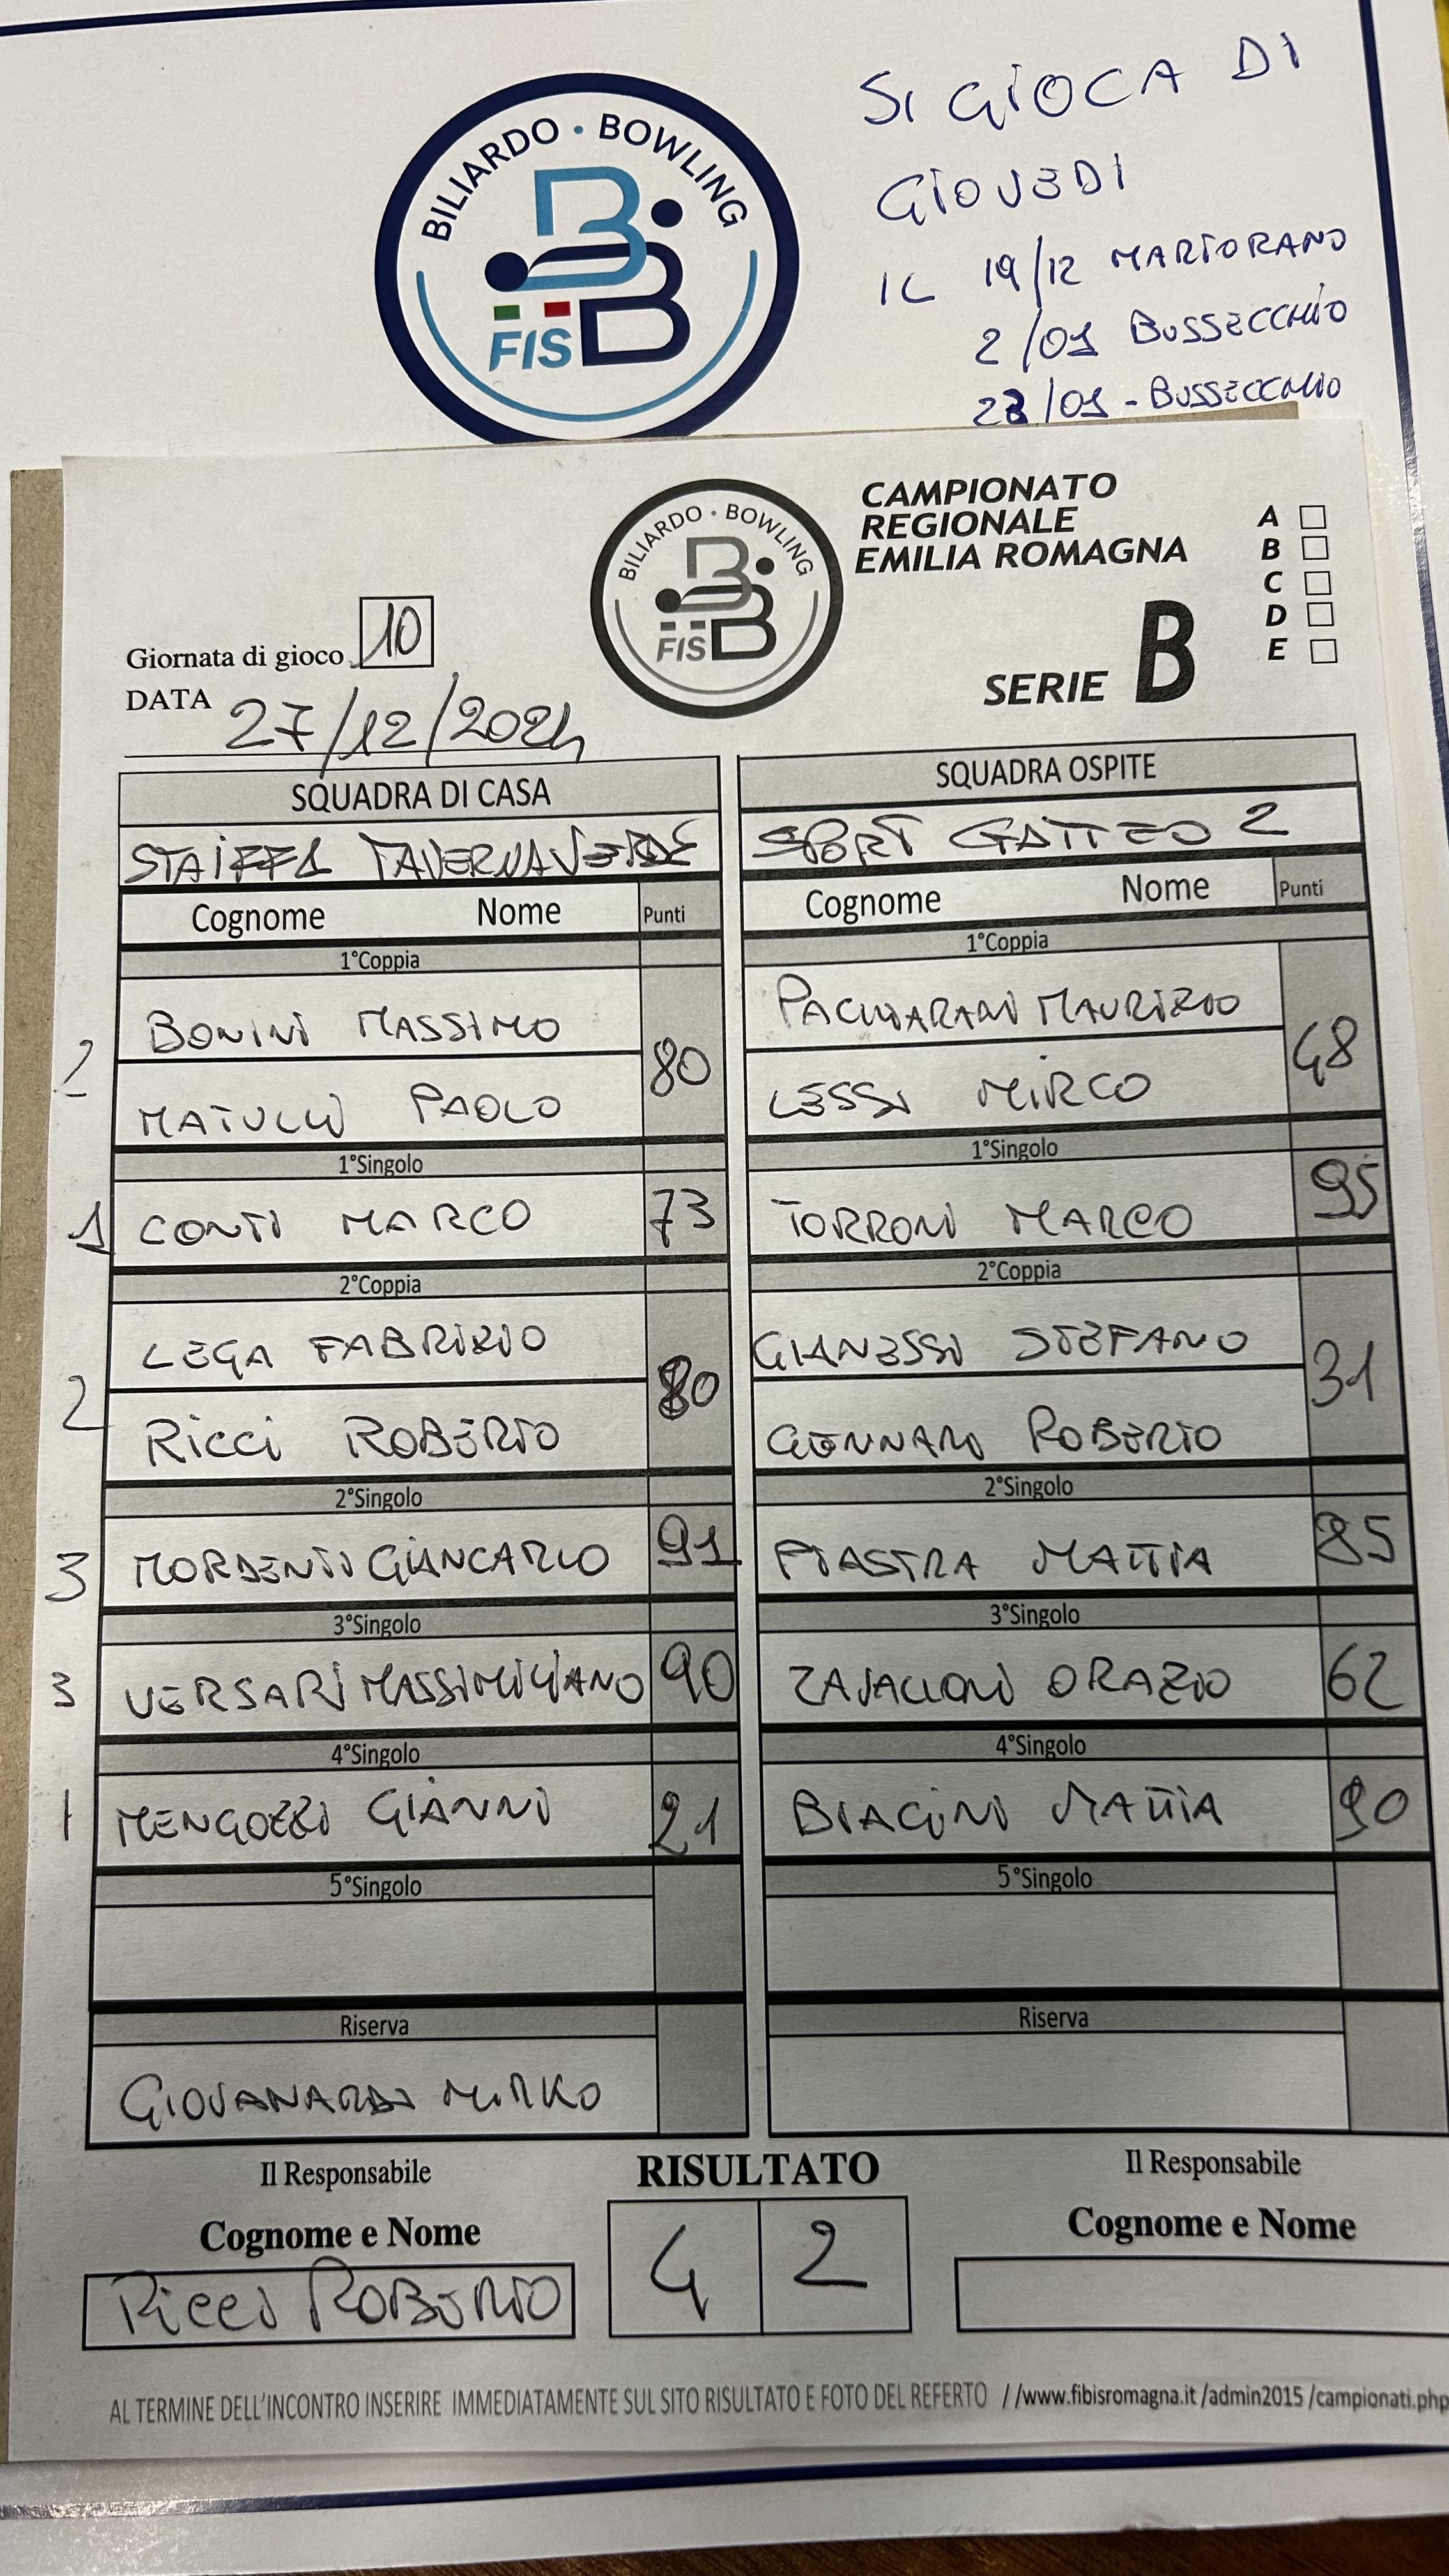 BILIARDO • BOWLING
FISBB
SI GIOCA DI
GIOVEDI
IL 19/12 MARTORANO
2/01 BUSSECCHIO
23/01 - BUSSECCHIO
BILIARDO • BOWLING
FISBB
CAMPIONATO
REGIONALE
EMILIA ROMAGNA
SERIE B
A
B
C
D
E
Giornata di gioco 10
DATA 27/12/2024
SQUADRA DI CASA
STAIFFA TAVERNAVERDE
Cognome Nome Punti
1°Coppia
2 BONINI MASSIMO 80
MATULLI PAOLO
1°Singolo
1 CONTI MARCO 73
2°Coppia
2 LEGA FABRIZIO 80
RICCI ROBERTO
2°Singolo
3 MORDENTI GIANCARLO 91
3°Singolo
3 VERSARI MASSIMILIANO 90
4°Singolo
1 MENGOZZI GIANNI 21
5°Singolo
Riserva
GIOVANARDI MIRKO
SQUADRA OSPITE
SPORT GATTEO 2
Cognome Nome Punti
1°Coppia
MAURIZIO 48
LESSI MIRCO
1°Singolo
TORRONI MARCO 95
2°Coppia
GIANESSI STEFANO 31
GENNARI ROBERTO
2°Singolo
PIASTRA MATTIA 85
3°Singolo
ZAVALLONI ORAZIO 62
4°Singolo
BIAGINI MATTIA 90
5°Singolo
Riserva
Il Responsabile
Cognome e Nome
RICCI ROBERTO
RISULTATO
4 2
Il Responsabile
Cognome e Nome
AL TERMINE DELL'INCONTRO INSERIRE IMMEDIATAMENTE SUL SITO RISULTATO E FOTO DEL REFERTO //www.fibisromagna.it/admin2015/campionati.php